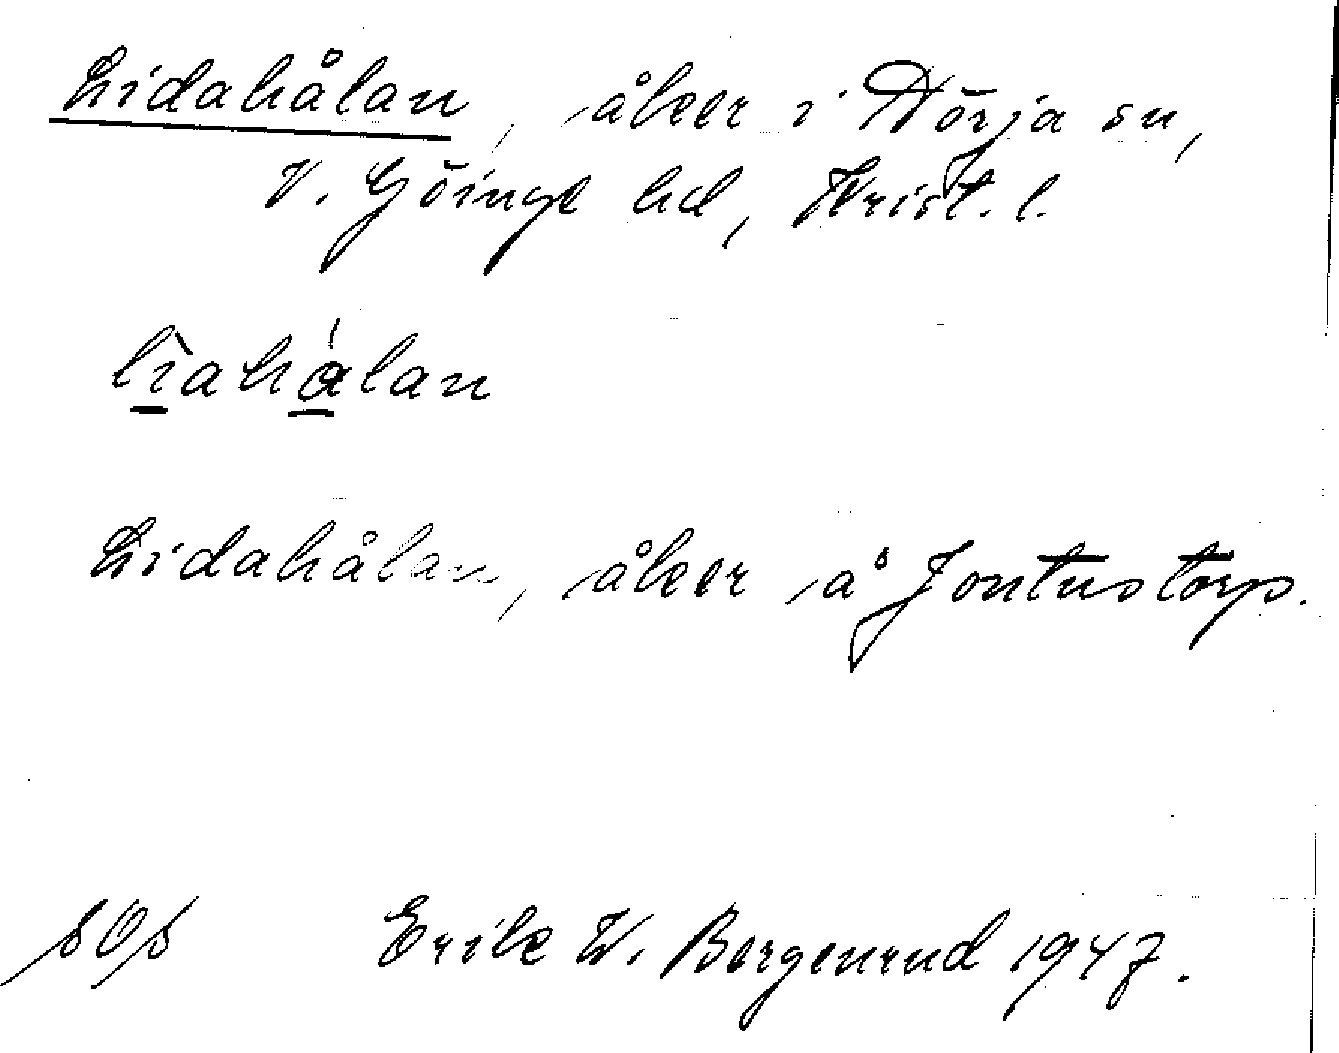 Lidahålan, åker i Nörja sn,
V. Göinge hd, Krist. l.
lìahálan
Lidahålan, åker å Jontustorp.
sOs Erik W. Bergenrud 1947.